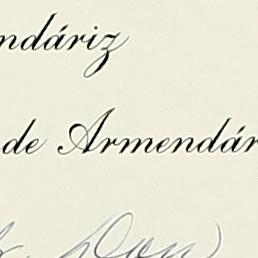 ndáriz
de Armendár
Don